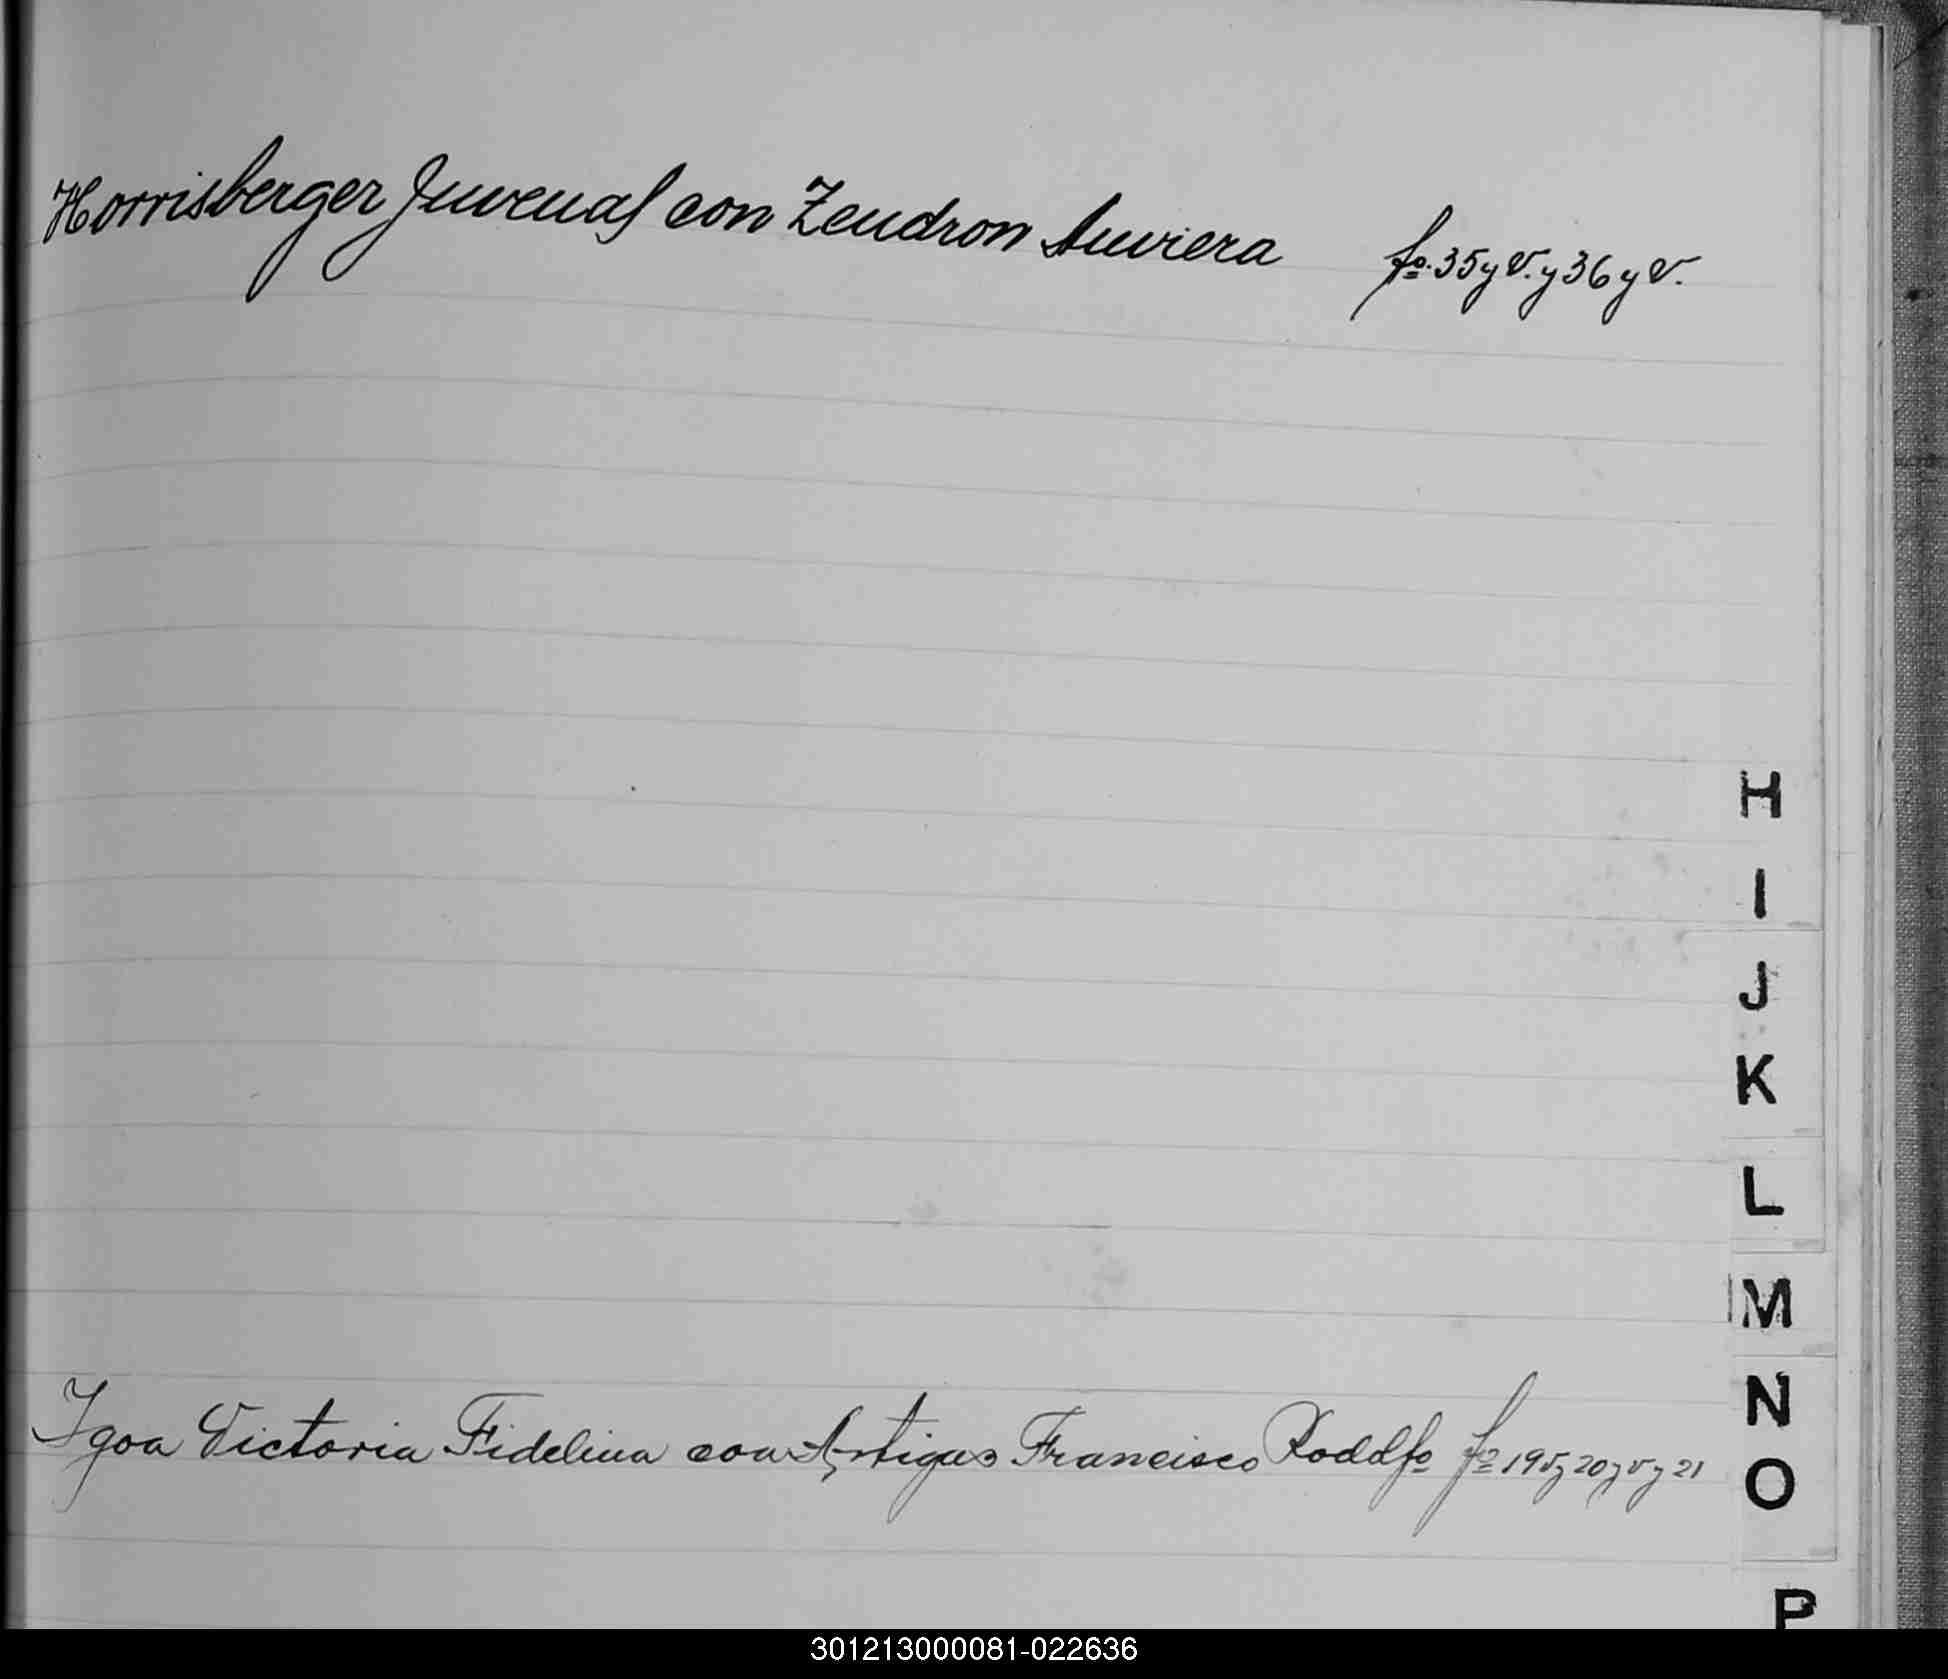 Horrisberger Juvenal con Zendron Auviera fº. 35 y v. y 36 y v.
H
I
J
K
L
M
N
Igoa Victoria Fidelina con Artigas Francisco Rodolfo fº 19 v y 20 y v y 21
O
P
301213000081-022636